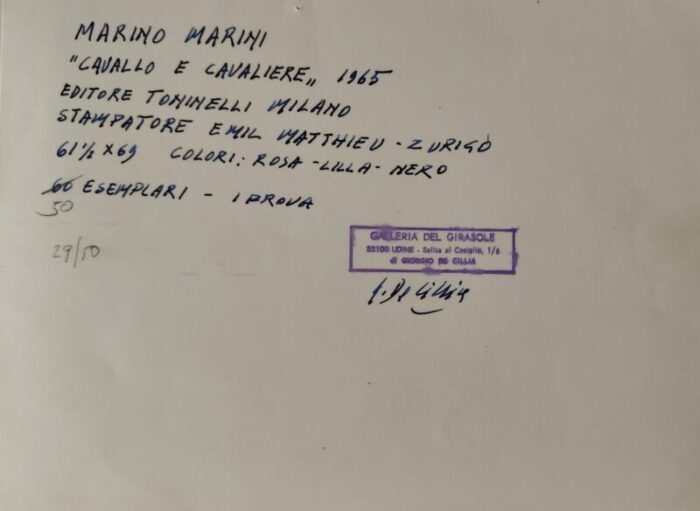 MARINO MARINI
"CAVALLO E CAVALIERE„ 1965
EDITORE TONINELLI MILANO
STAMPATORE EMIL MATTHIEU - ZURIGO
61½ X 69 COLORI: ROSA - LILLA - NERO
60 ESEMPLARI - 1 PROVA
50
29/50
GALLERIA DEL GIRASOLE
33100 UDINE - Salita al Castello, 1/a
di GIORGIO DE CILLIA
G. De Cillia